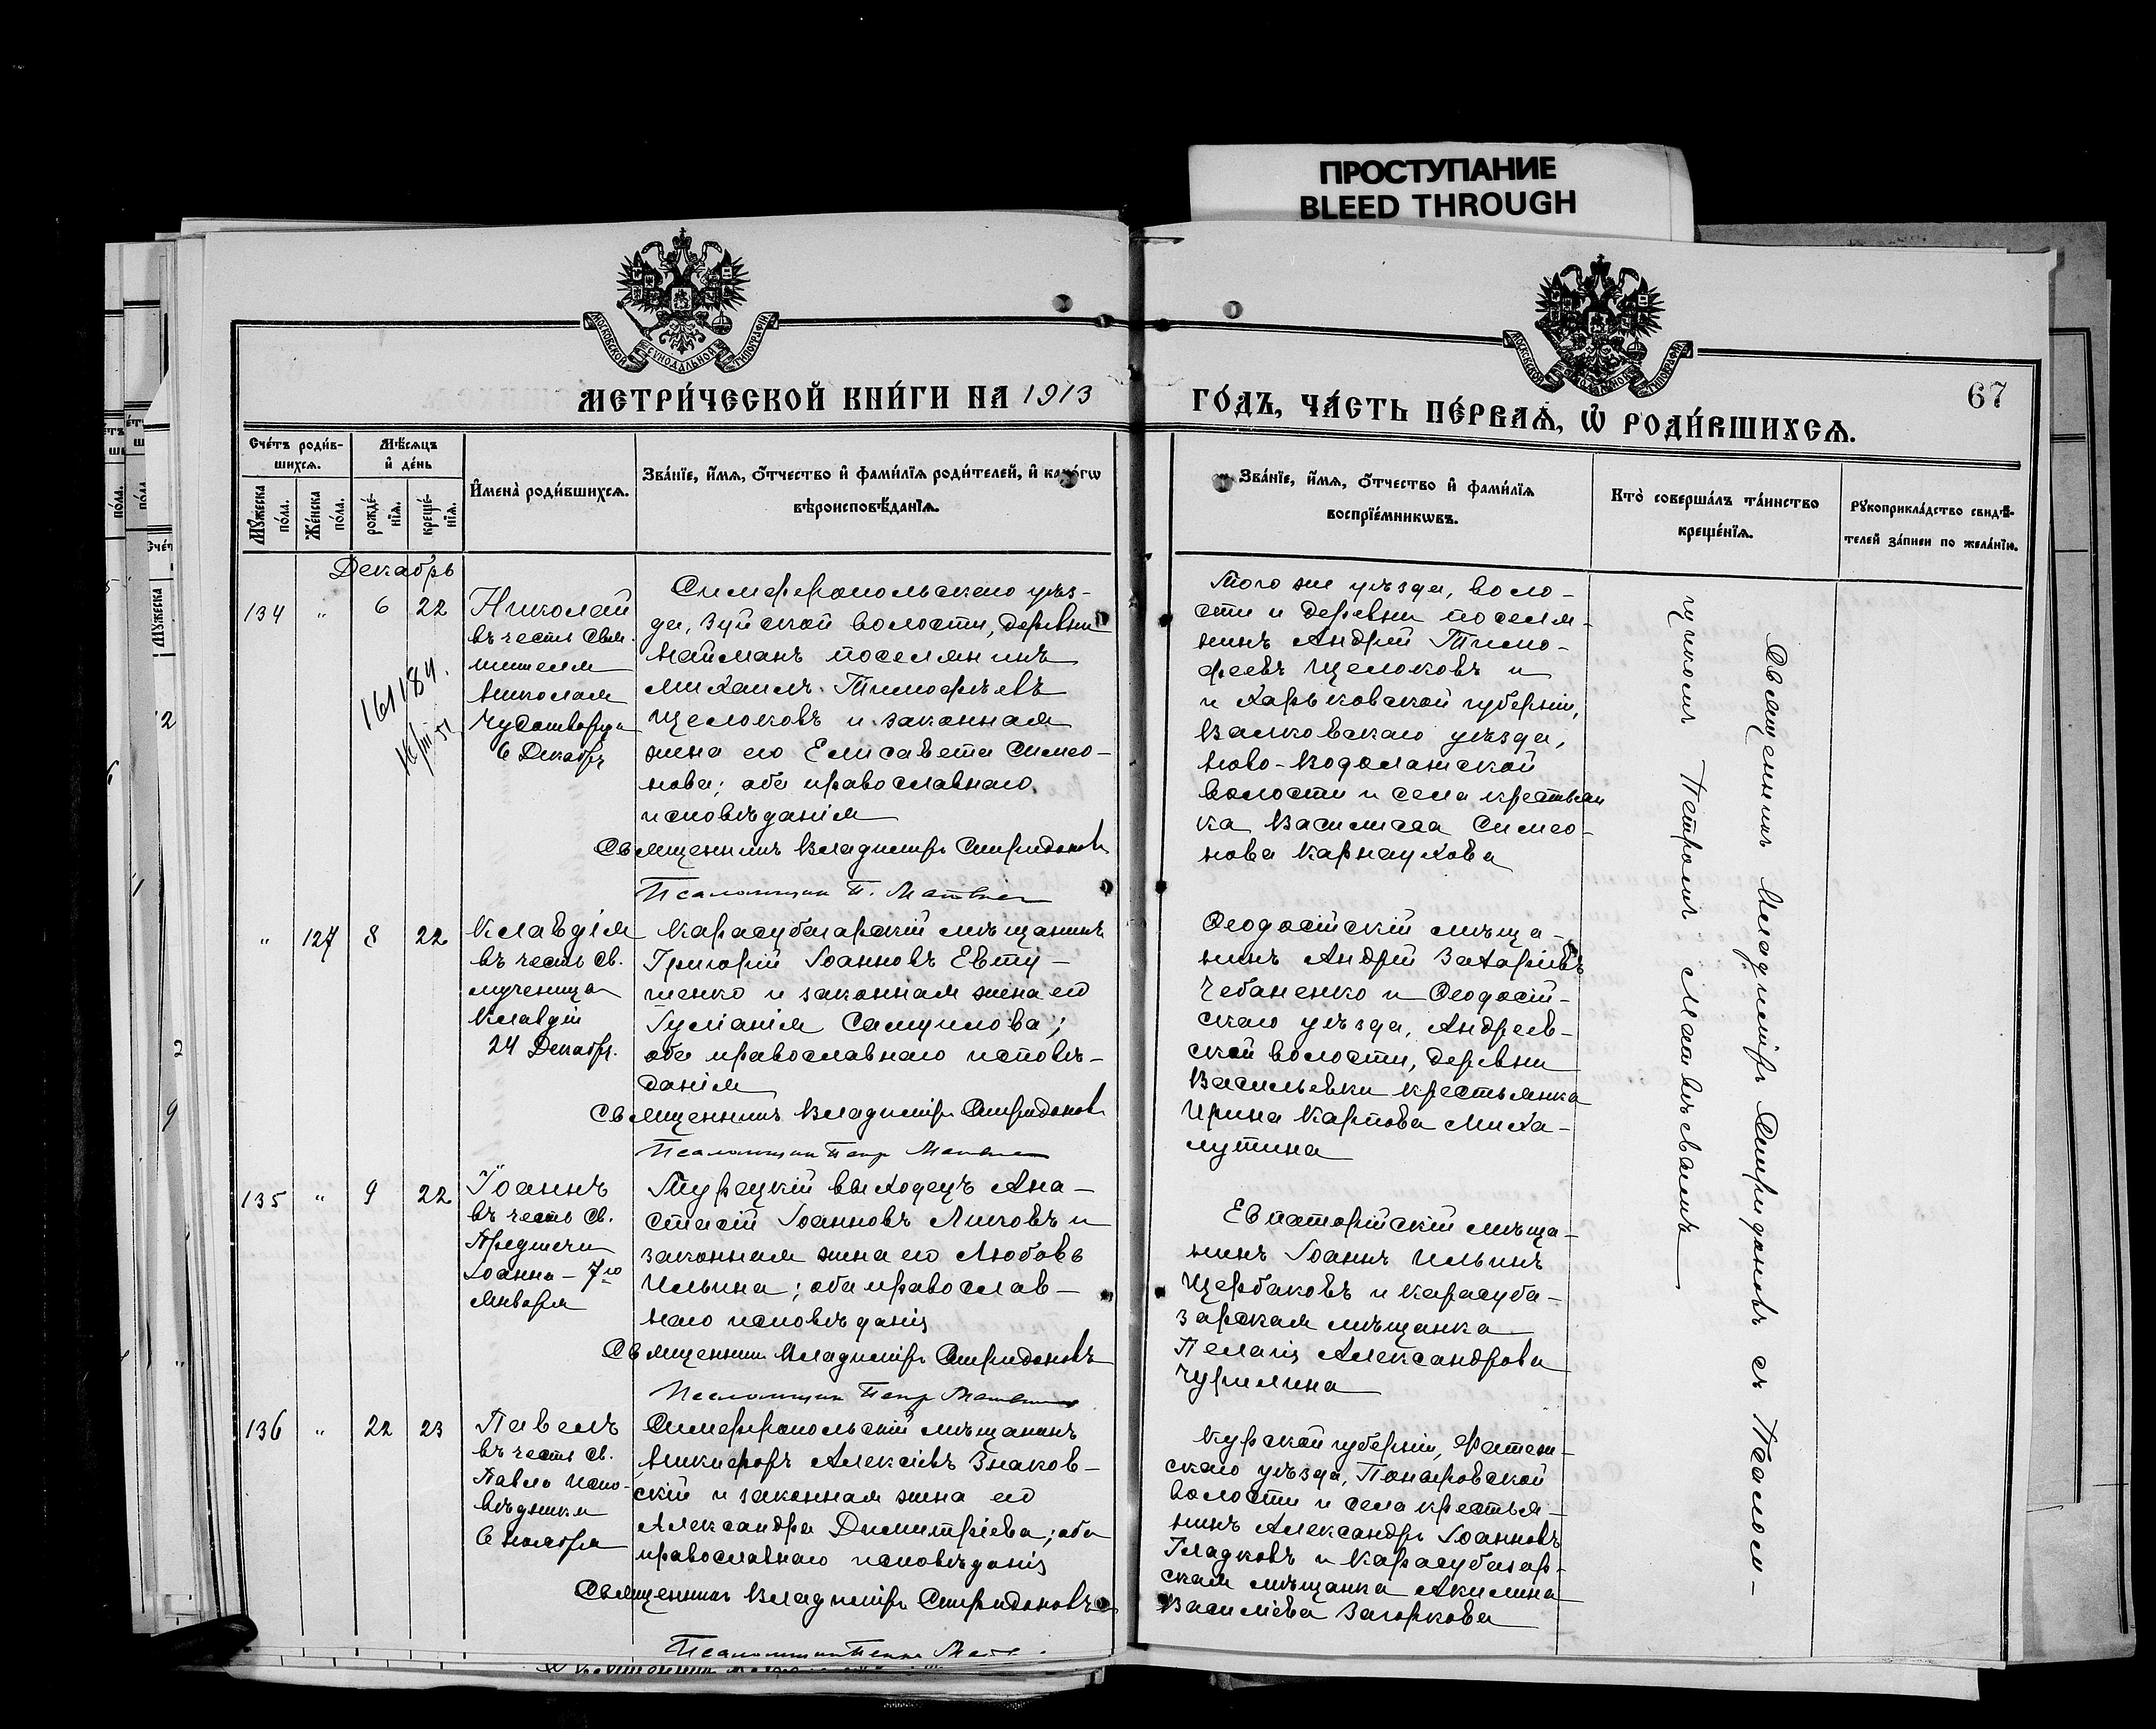 ПРОСТУПАНИЕ
BLEED THROUGH
МОСКОВСКОЙ СѴНОДАЛЬНОЙ ТИПОГРАФІИ
МОСКОВСКОЙ СѴНОДАЛЬНОЙ ТИПОГРАФІИ
МЕТРИ́ЧЕСКОЙ КНИ́ГИ НА 1913
ГО́ДЪ, ЧА́СТЬ ПЕ́РВАѦ, Ѡ РОДИ́ВШИХСѦ.
67
Сче́тъ роди́в-
шихсѧ.
Мꙋ́жеска
по́ла.
Же́нска
по́ла.
Мѣ́сѧцъ
и҆ де́нь
рожде́-
нїѧ.
креще́-
нїѧ.
И҆мена̀ роди́вшихсѧ.
Зва́нїе, и҆́мѧ, ѻ҆́тчество и҆ фами́лїѧ роди́телей, и҆ како́гѡ
вѣроисповѣ́данїѧ.
Зва́нїе, и҆́мѧ, ѻ҆́тчество и҆ фами́лїѧ
воспрїе́мникѡвъ.
Кто̀ соверша́лъ та́инство
креще́нїѧ.
Рꙋкоприкла́дство свидѣ́-
телей за́писи по жела́нїю.
Декабрь
134 " 6 22
Николай
въ честь Свя-
тителя
Николая
Чудотворца
6 Декабр.
161184.
Симферопольскаго уѣз-
да, Зуйской волости, деревни
Найманъ поселянинъ
Михаилъ Тимофѣевъ
Щелоковъ и законная
жена его Елисавета Симео-
нова; оба православнаго
исповѣданія
Священникъ Владиміръ Спиридоновъ
Псаломщик П. Матвѣев
Того же уѣзда, воло-
сти и деревни поселя-
нинъ Андрей Тимо-
феевъ Щелоковъ и
и Харьковской губерніи,
Валковскаго уѣзда,
Ново-Водолажской
волости и села крестьян
ка Василисса Симео-
нова Карнаухова
" 127 8 22
Клавдія
въ честь Св.
мученицы
Клавдіи
24 Декабр.
Карасубазарскій мѣщанинъ
Григорій Іоанновъ Евту-
шенко и законная жена его
Іуліанія Самуилова;
оба православнаго исповѣ-
данія
Священникъ Владиміръ Спиридоновъ
Псаломщик Петр Матвѣев
Ѳеодосійскій мѣща-
нинъ Андрей Захаріевъ
Чебаненко и Ѳеодосій-
скаго уѣзда, Андреев-
ской волости, деревни
Васильевки крестьянка
Ирина Карпова Миха-
лутина
135 " 9 22
Іоаннъ
въ честь Св.
Предтечи
Іоанна - 7го
Января
Турецкій выходецъ Ана-
стасій Іоанновъ Ликовъ и
законная жена его Любовь
Ильина; оба православ-
наго исповѣданія
Священник Владиміръ Спиридоновъ
Псаломщик Петр Матвѣев
Евпаторійскій мѣща-
нинъ Іоаннъ Ильинъ
Щербаковъ и Карасуба-
зарская мѣщанка
Пелагія Александрова
Чурилина
136 " 22 23
Павелъ
въ честь Св.
Павла Испо-
вѣдника
6 Ноября
Симферопольскій мѣщанинъ
Никифоръ Алексіевъ Знаков-
скій и законная жена его
Александра Димитріева; оба
православнаго исповѣданія
Священникъ Владиміръ Спиридоновъ
Псаломщик Петр Матв
Курской губерніи, Фатеж-
скаго уѣзда, Поныровской
волости и села крестья-
нинъ Александръ Іоанновъ
Гладковъ и Карасубазар-
ская мѣщанка Акилина
Василіева Загоркова
Священникъ Владиміръ Спиридоновъ съ Псалом-
щикомъ Петромъ Матвѣевымъ